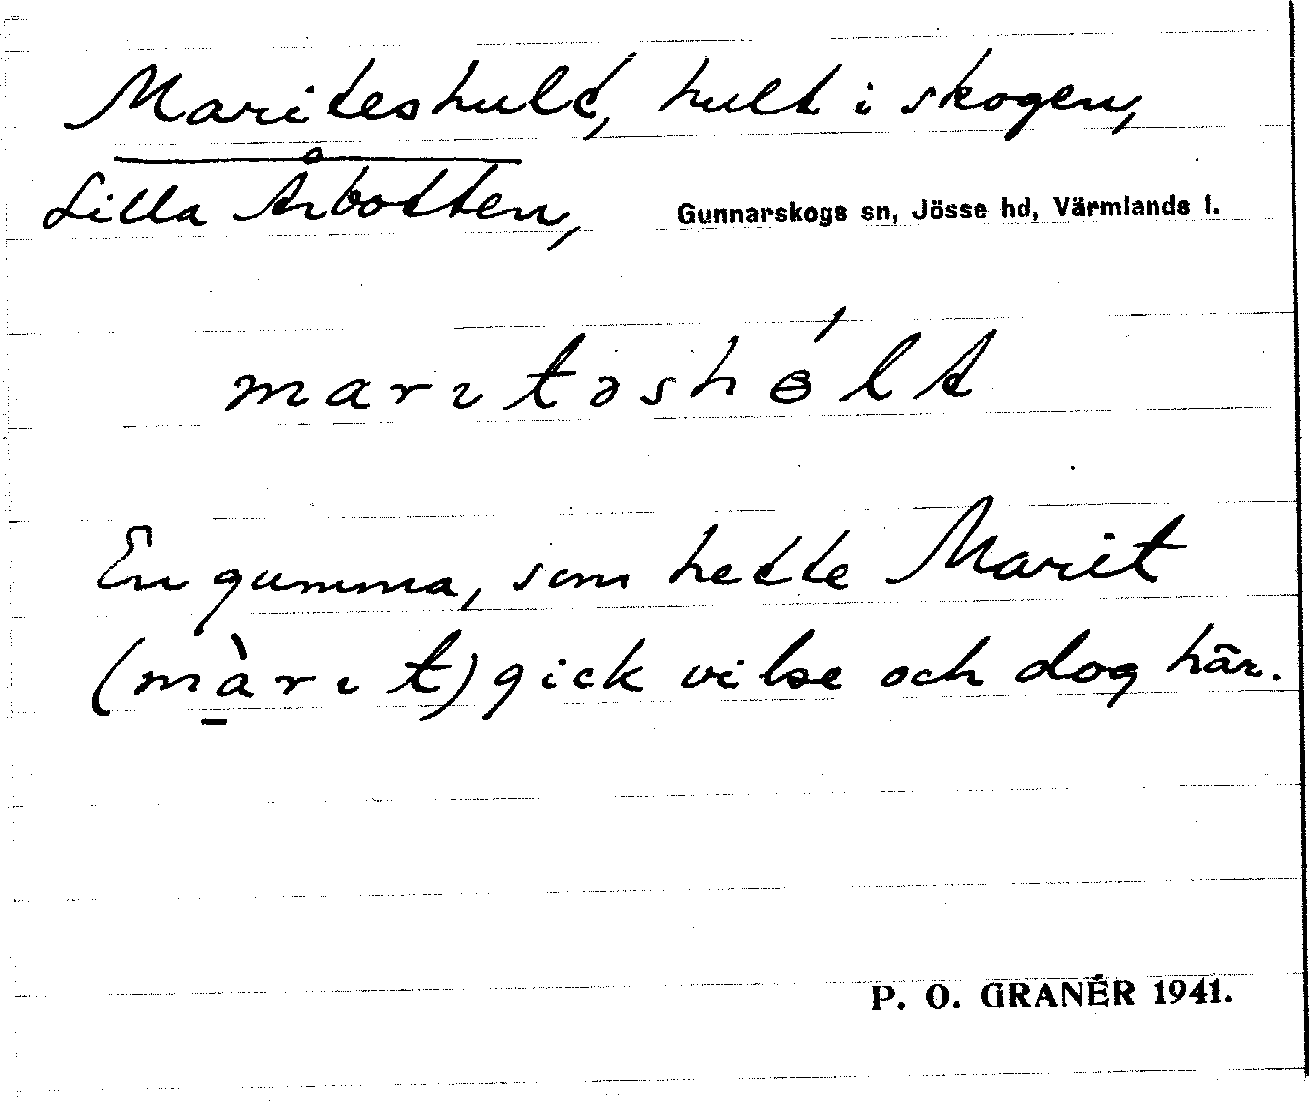 Mariteshult, hult i skogen,
Lilla Årbotten, Gunnarskogs sn, Jösse hd, Värmlands l.
marıtəshɵ́lt
En gumma, som hette Marit
(mà̱rıt) gick vilse och dog här.
P. O. GRANÉR 1941.